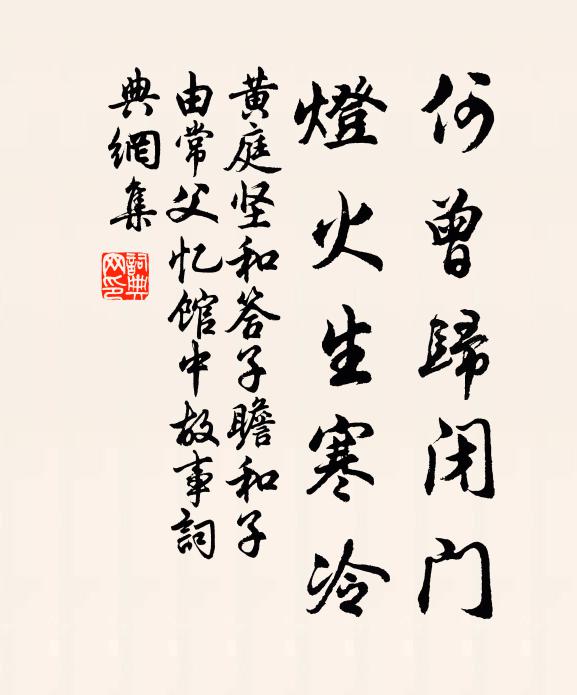 何曾歸闭门
燈火生寒冷
黄庭坚和答子瞻和子
由常父忆馆中故事詞
典網集
詞典网印